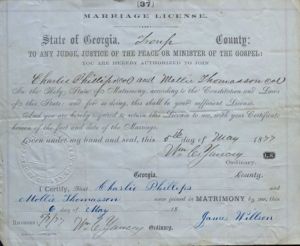 (37)
MARRIAGE LICENSE.
State of Georgia, Troup County:
TO ANY JUDGE, JUSTICE OF THE PEACE OR MINISTER OF THE GOSPEL:
YOU ARE HEREBY AUTHORIZED TO JOIN
Charlie Phillips col and Mollie Thomasson col
In the Holy State of Matrimony, according to the Constitution and Laws
of this State; and for so doing, this shall be your sufficient License.
And you are hereby required to return this License to me, with your Certificate
hereon of the fact and date of the Marriage.
Given under my hand and seal, this 5th day of May 1877
Wm C. Yancey
Ordinary.
Georgia, County.
I Certify, That Charlie Phillips and
Mollie Thomasson were joined in MATRIMONY by me, this
6 day of May 18
James Willson
Wm C. Yancey
Ordinary.